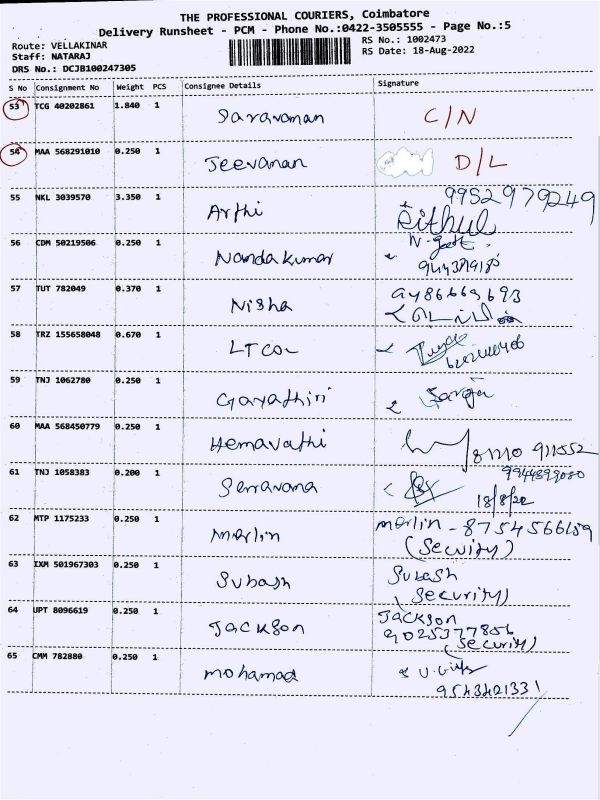 THE PROFESSIONAL COURIERS, Coimbatore
Delivery Runsheet - PCM - Phone No.:0422-3505555 - Page No.:5
Route: VELLAKINAR
RS No.: 1002473
Staff: NATARAJ
RS Date: 18-Aug-2022
DRS No.: DCJB100247305
S No Consignment No Weight PCS Consignee Details Signature
53 TCG 40202861 1.840 1 Saravanan C/N
54 MAA 568291010 0.250 1 Jeevanan D/L
55 NKL 3039570 3.350 1 Arthi 9952979249
Rithul
56 CDM 50219506 0.250 1 Nandakumar
57 TUT 782049 0.370 1 Nisha
58 TRZ 155658048 0.670 1 LTCO
59 TNJ 1062780 0.250 1 Gayathiri Saroja
60 MAA 568450779 0.250 1 Hemavathi 81110 911552
61 TNJ 1058383 0.200 1 9944899080
18/8/22
62 MTP 1175233 0.250 1 Merlin merlin - 8754566659
(Security)
63 IXM 501967303 0.250 1 Subash Subash
(Security)
64 UPT 8096619 0.250 1 Jackson Jackson
9025377856
(Security)
65 CMM 782880 0.250 1 mohamad
9543421331